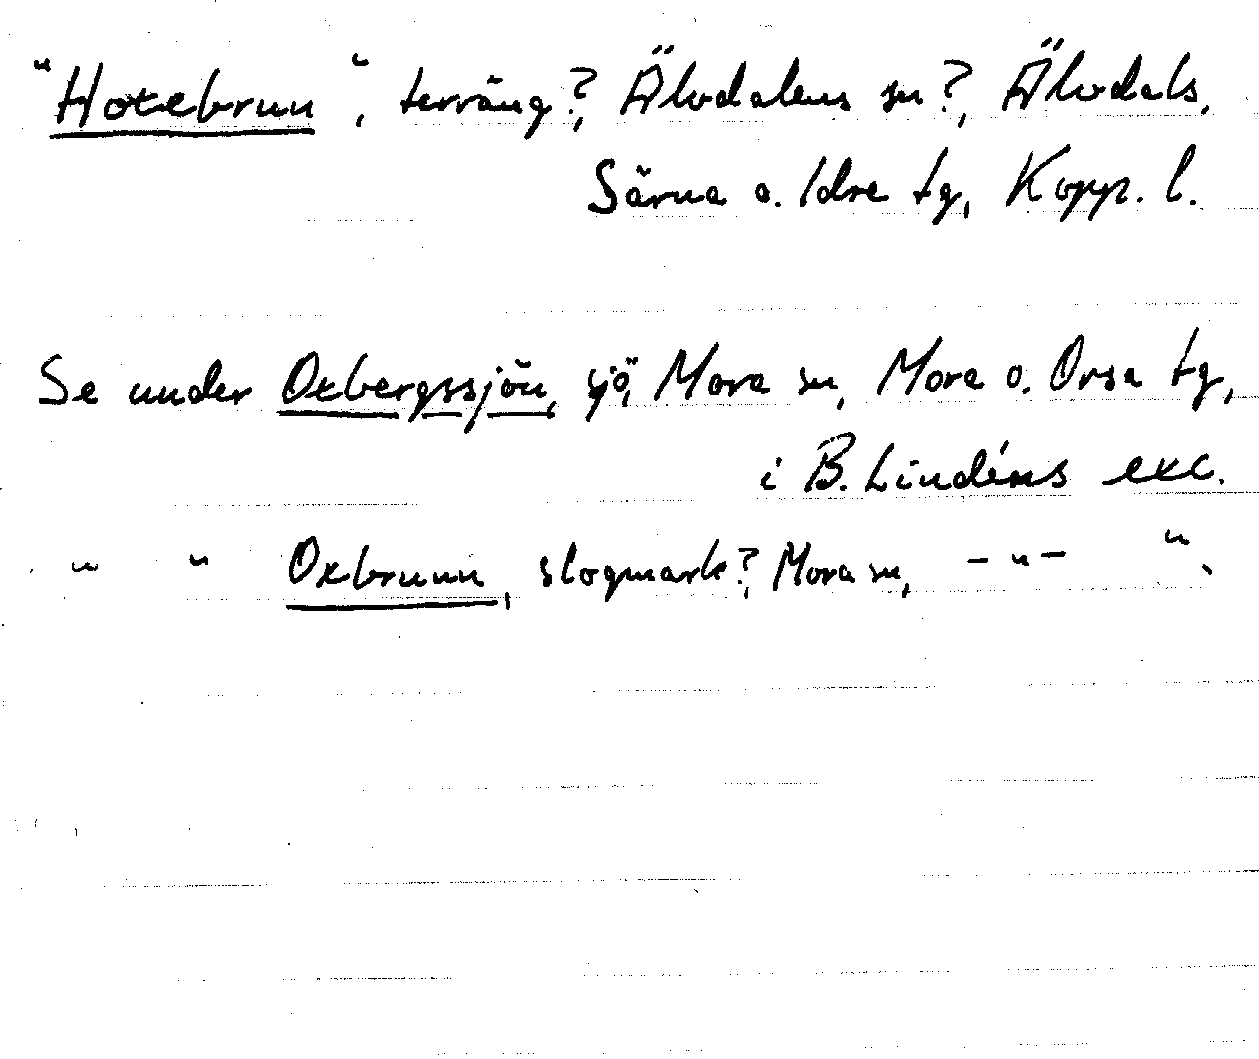 "Hotebrun", terräng?, Älvdalens sn?, Älvdals,
Särna o. Idre tg, Kopp. l.
Se under Oxbergssjön, sjö, Mora sn, Mora o. Orsa tg,
i B. Lindéns exc.
" " Oxbrunn, slogmark?, Mora sn, – " – ".